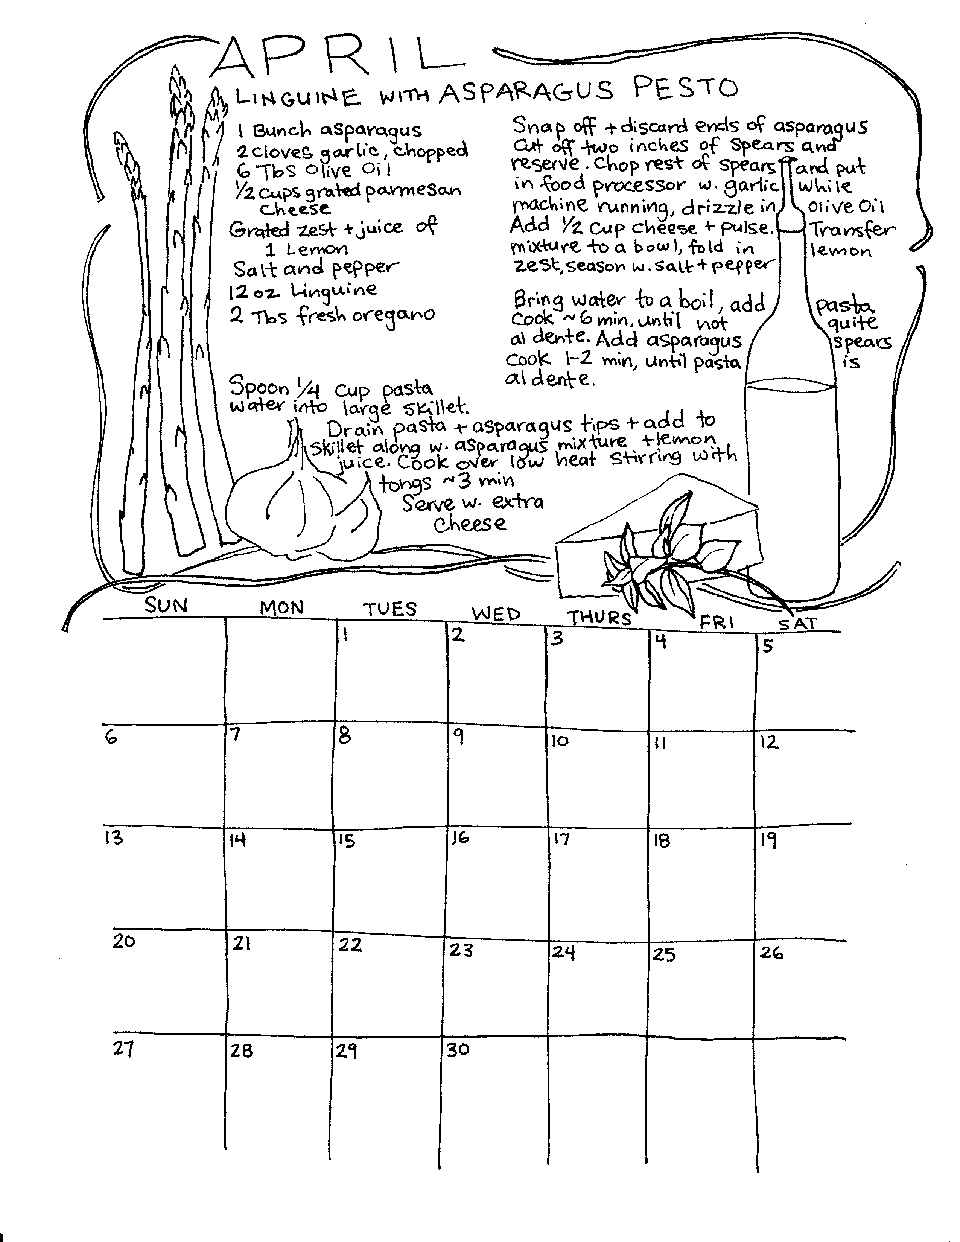 APRIL
LINGUINE WITH ASPARAGUS PESTO
1 Bunch asparagus
2 cloves garlic, chopped
6 Tbs olive oil
1/2 cups grated parmesan
cheese
Grated zest + juice of
1 Lemon
Salt and pepper
12 oz Linguine
2 Tbs fresh oregano
Snap off + discard ends of asparagus
Cut off two inches of spears and
reserve. Chop rest of spears and put
in food processor w. garlic while
machine running, drizzle in olive oil
Add 1/2 cup cheese + pulse. Transfer
mixture to a bowl, fold in lemon
zest, season w. salt + pepper
Bring water to a boil, add pasta
cook ~6 min, until not quite
al dente. Add asparagus spears
cook 1-2 min, until pasta is
al dente.
Spoon 1/4 cup pasta
water into large skillet.
Drain pasta + asparagus tips + add to
skillet along w. asparagus mixture + lemon
juice. Cook over low heat stirring with
tongs ~3 min
Serve w. extra
cheese
SUN MON TUES WED THURS FRI SAT
1 2 3 4 5
6 7 8 9 10 11 12
13 14 15 16 17 18 19
20 21 22 23 24 25 26
27 28 29 30